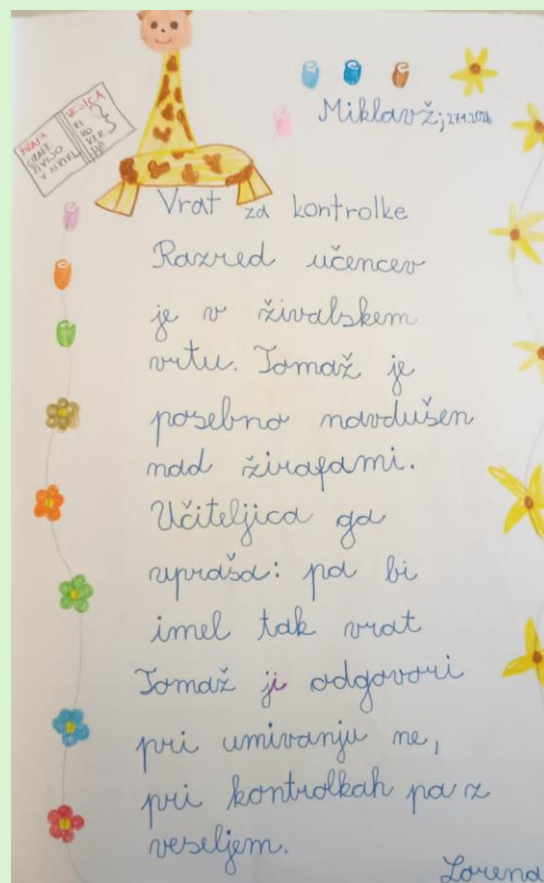 Miklavž, 27.1.2026
VESLICA
ŽIRAFA
ŽIVIJO
V AFRIKI
Vrat za kontrolke
Razred učencev
je v živalskem
vrtu. Tomaž je
posebno navdušen
nad žirafami.
Učiteljica ga
vpraša: pa bi
imel tak vrat
Tomaž ji odgovori
pri umivanju ne,
pri kontrolkah pa z
veseljem.
Lorena